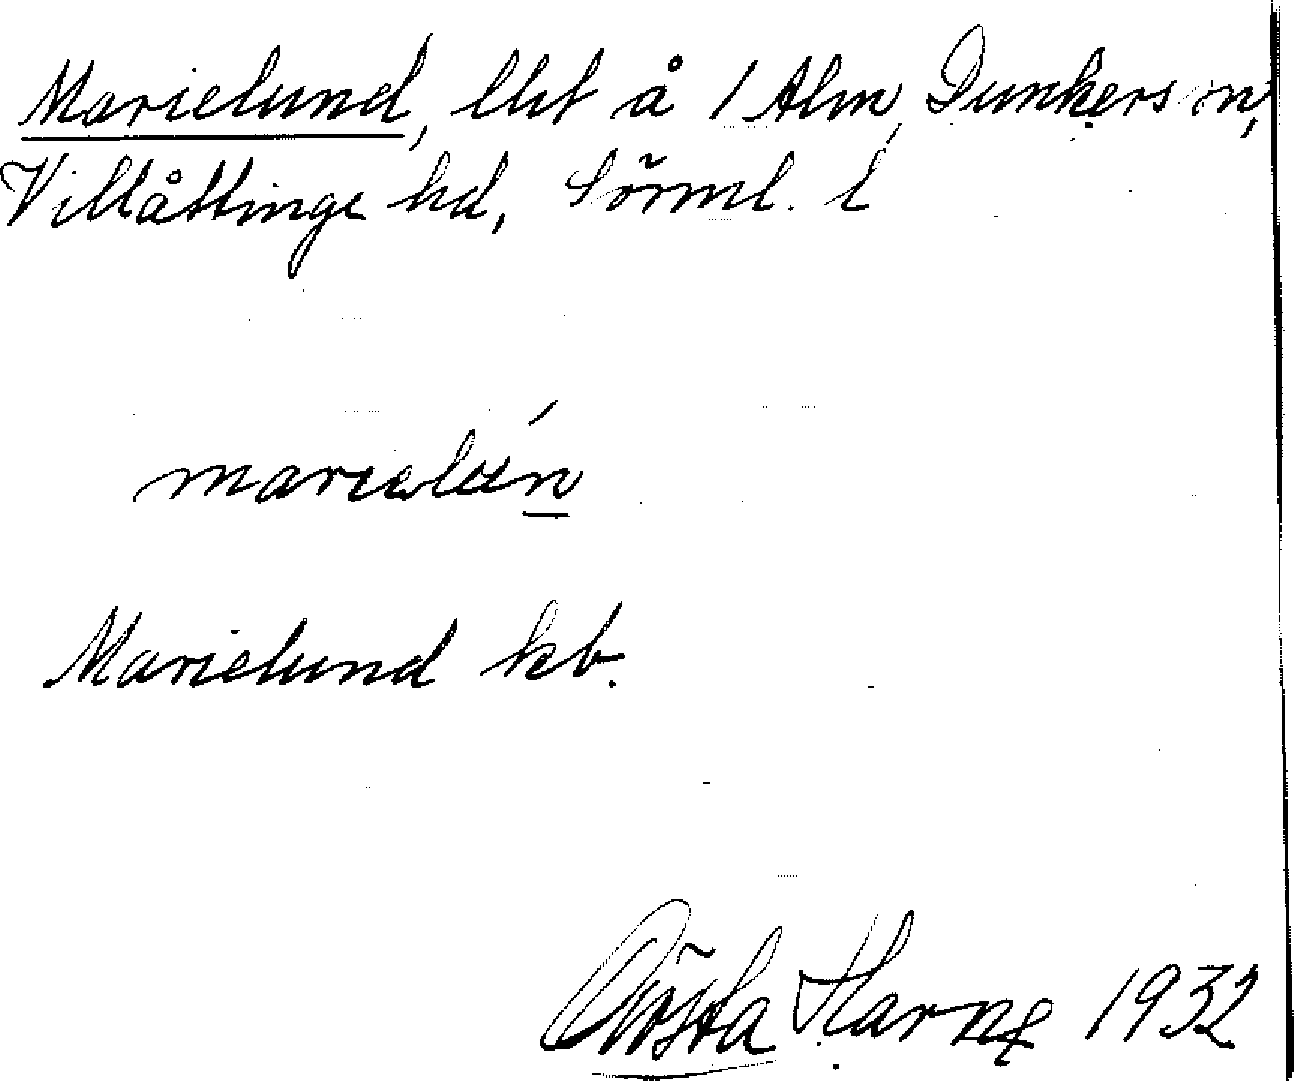 Marielund, lht å 1 Alm, Dunkers sn,
Villåttinge hd, Sörml. l
Marielund kb.
Gösta Harne 1932